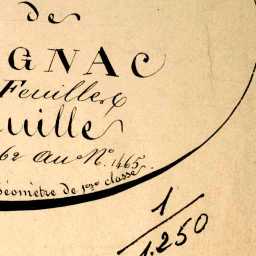 de
GNAC
Feuilles
uille
62 au N.º 1465.
Géomètre de 1ère classe
1
1.250